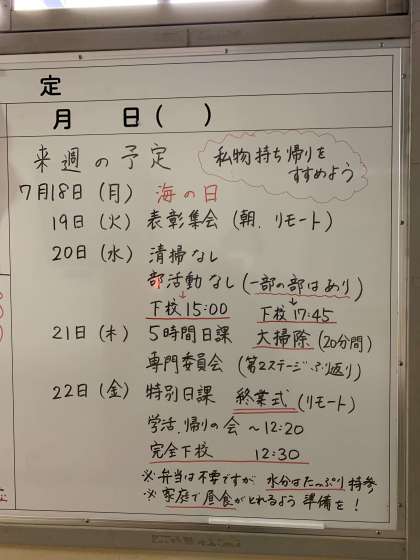 定
月 日( )
来週の予定
私物持ち帰りを
すすめよう
7月18日(月) 海の日
19日(火) 表彰集会(朝.リモート)
20日(水) 清掃なし
部活動なし(一部の部はあり)
↓ ↓
下校15:00 下校17:45
21日(木) 5時間日課 大掃除(20分間)
専門委員会(第2ステージふり返り)
22日(金) 特別日課 終業式(リモート)
学活.帰りの会 ~12:20
完全下校 12:30
※弁当は不要ですが 水分はたっぷり持参
※家庭で昼食がとれるよう準備を!